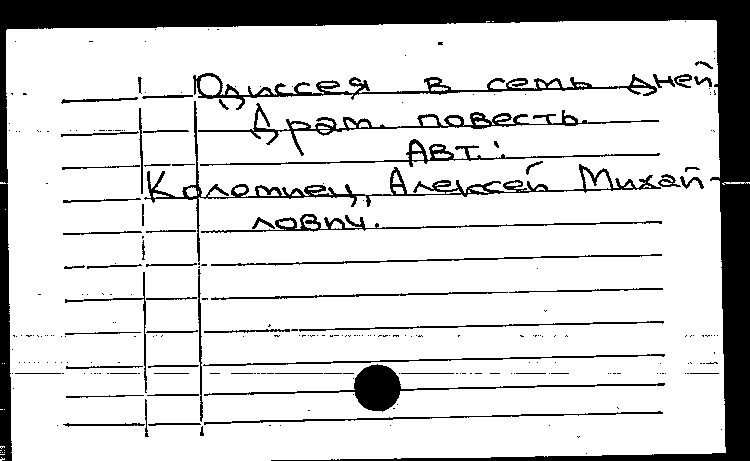 Одиссея в семь дней.
Драм. повесть.
Авт.:
Коломиец, Алексей Михай-
лович.